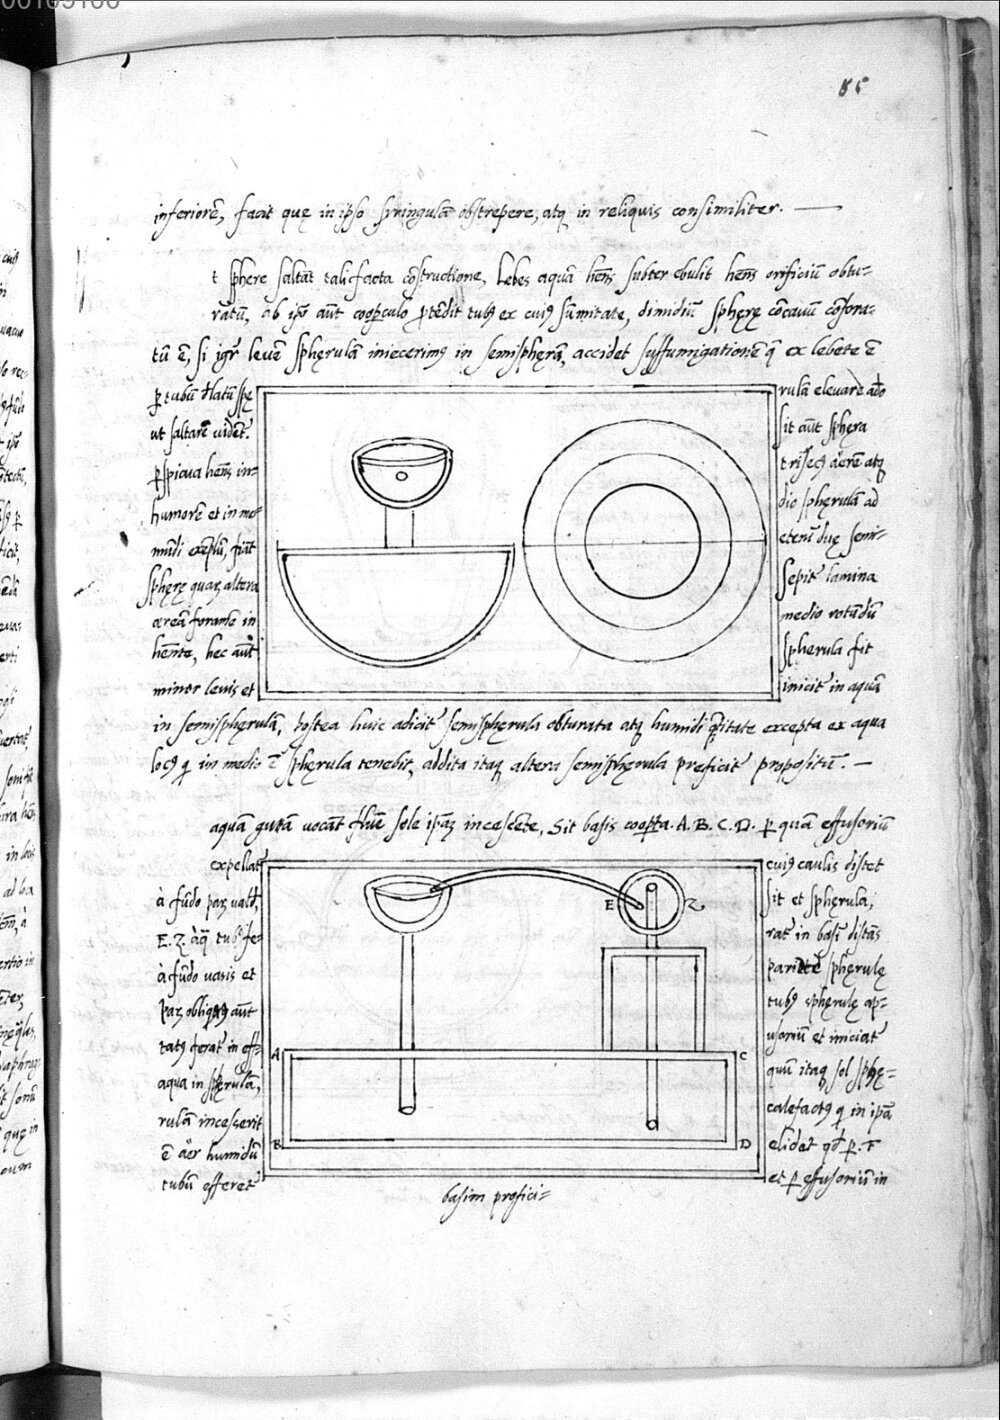 85
inferiorẽ, facit quę in ipso siringulã obstrepere, atq in reliquis consimiliter.
t sphere saltãt tali facta cõstructione, Lebes aquã hẽns subter ebulit hẽns orificiũ obtu-
ratũ, ab ipso aũt cooperculo ptẽdit tubus ex cuius sũmitate, dimidiũ sphęrę cõcauũ cõfora-
tũ ẽ, si igr leuẽ sphęrulã iniecerimus in semisphęrã, accidet suffumigationẽ q ex lebete ẽ
p tubũ tlatũ spę rulã eleuare adeo
ut saltare uidet. sit aũt sphera
pspicua hẽns in- trisecus äerẽ atq
humorẽ et in me- dio sphęrulã ad
mũdi exẽplũ, fiãt etenĩ duę semi-
sphęrę quaꝝ altera sepit lamina
æreã foramẽ in medio rotũdũ
hẽnte, hec aũt spherula fit
minor leuis et inicit in aquã
in semisphęrulã, postea huic adicit semispherula obturata atq humidi qtitate excepta ex aqua
locus q in medio ẽ sphęrula tenebit, addita itaq altera semisphęrula preficiẽt propositũ.
aquã gutã vocãt fluẽ sole ipaꝝ incescẽte, Sit basis coopta. A. B. C. D. p quam effusoriũ
expellat cuius caulis distet
à fũdo paꝝ valde, sit et spherula,
E. Z. à q tubus fe- rat in basĩ distãs
à fũdo vasis et pariete spherulę
paꝝ obliquus aũt tubus spherulę ap-
tatus ferat in eff- usoriũ et iniciat
aqua in spherulã, quũ itaq sol sphę-
rulã incesserit calefactus q in ipa
ẽ aër humidũ elidet qd p. F
tubũ efferet et p effusoriũ in
basim profici-
E Z
A C
B D